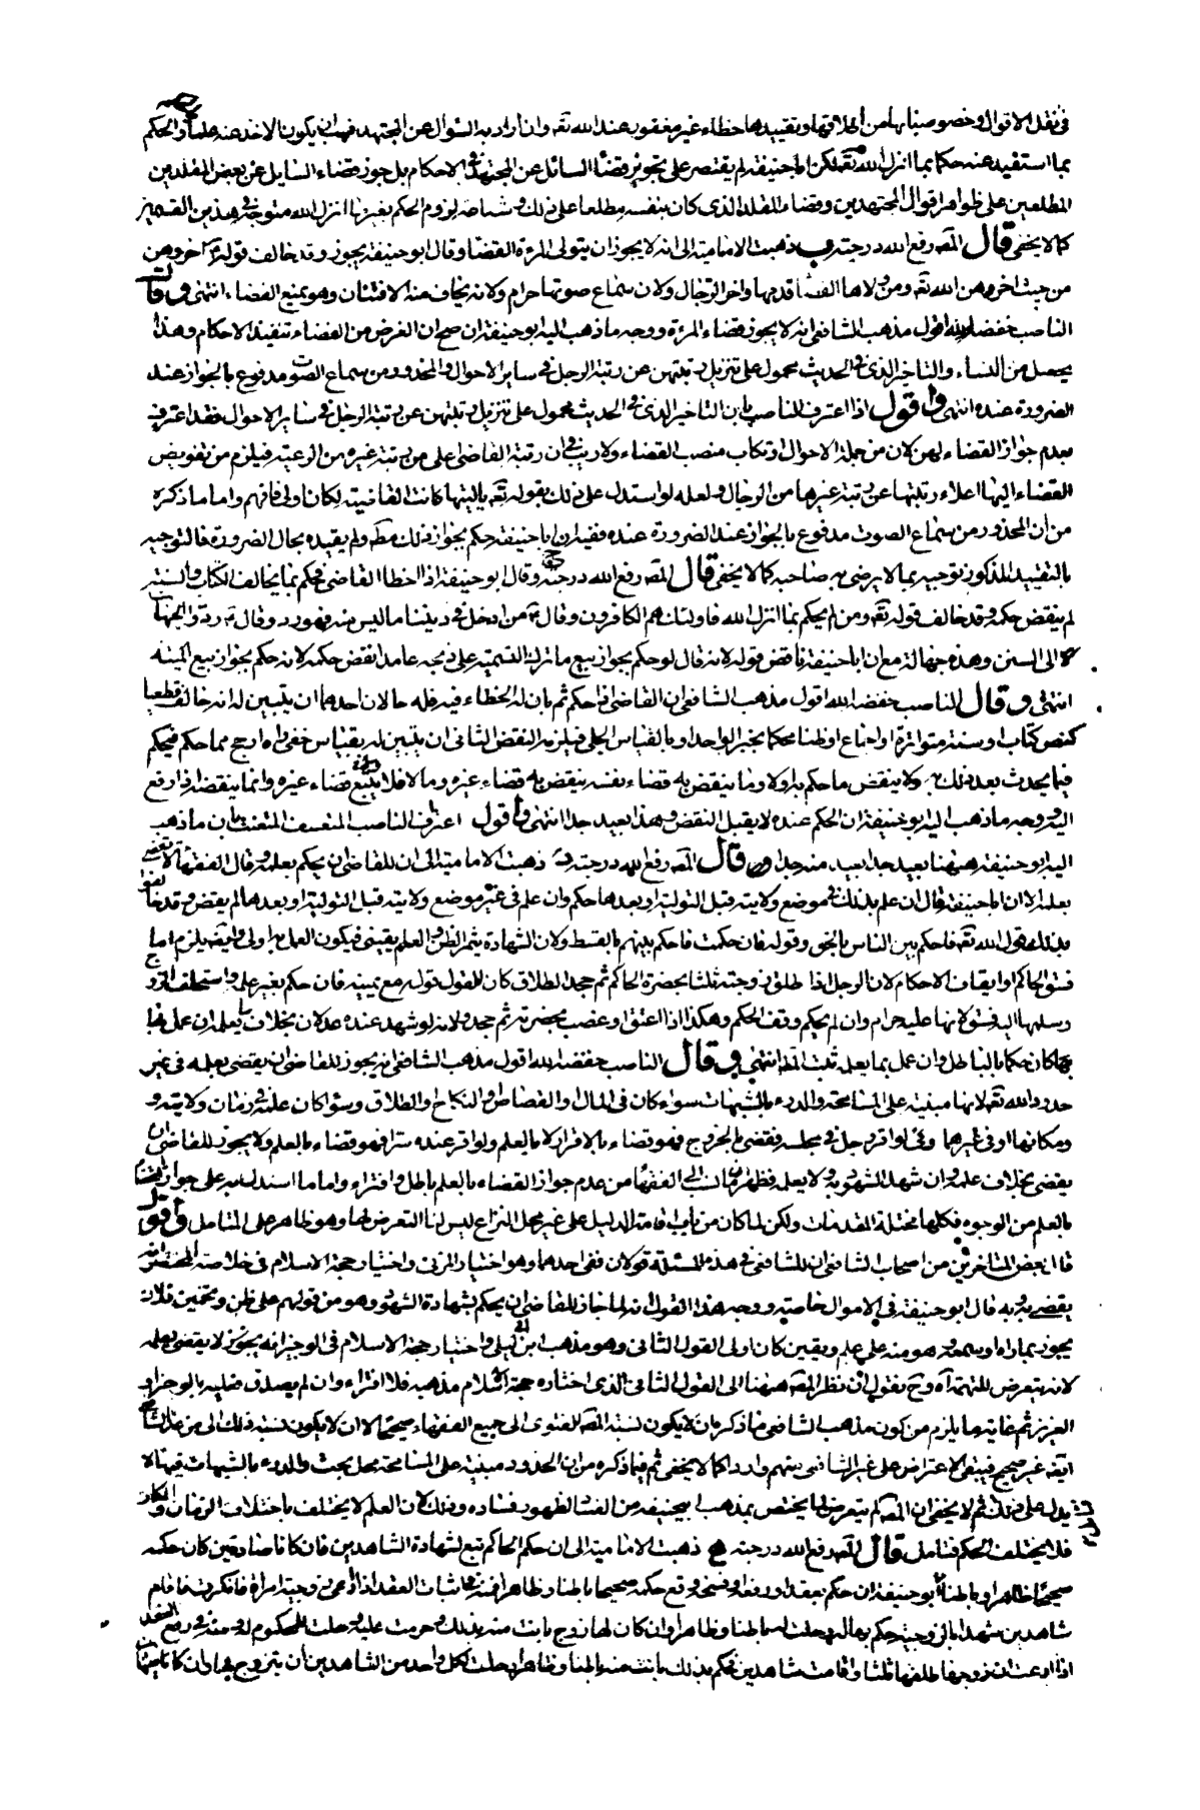 في نقل الاقوال وخصوصياتها من اطلاقها وتقييدها خطاء غير مغفور عند الله تعه وان اراد به السؤال عن المجتهد فهب ان يكون الاخذ عنه علما والحكم
بما استفيد عنه حكما بما انزل الله تعه لكن ابا حنيفة لم يقتصر على تجويز قضا السائل عن المجتهد في الاحكام بل جوز قضاء السايل عن بعض المقلدين
المطلعين على ظواهر اقوال المجتهدين وقضاء المقلد الذي كان بنفسه مطلعا على ذلك وشناعة لزوم الحكم بغير ما انزل الله متوجه في هذين القسمين
كما لا يخفى قال المصه رفع الله درجته ب ذهبت الامامية الى انه لا يجوز ان يتولى المرءة القضا وقال ابو حنيفة يجوز وقد خالف قوله آخروهن
من حيث اخروهن الله تعه ومن ولاها القضا قدمها واخر الرجال ولان سماع صوتها حرام ولانه يخاف منه الافتتان وهو يمنع القضاء انتهى وقال
الناصب خفضه الله اقول مذهب الشافعي انه لا يجوز قضاء المرءة ووجه ما ذهب اليه ابو حنيفة ان صح ان الغرض من القضاء تنفيذ الاحكام وهذا
يحصل من النساء والتاخير الذي في الحديث محمول على تنزيل رتبتهن عن رتبة الرجل في ساير الاحوال والمحذور من سماع الصوت مدفوع بالجواز عند
الضرورة عنده انتهى واقول اذا اعترف الناصب بان التاخير الذي في الحديث محمول على تنزيل رتبتهن عن رتبة الرجل في ساير الاحوال فقد اعترف
بعدم جواز القضاء لهن لان من جملة الاحوال ارتكاب منصب القضاء ولا ريب في ان رتبة القاضي اعلى من رتبة غيره من الرعية فيلزم من تفويض
القضاء اليها اعلاء رتبتها عن رتبة غيرها من الرجال ولعله لو استدل على ذلك بقوله تعه ياليتها كانت القاضية لكان اولى فافهم واما ما ذكره
من ان المحذور من سماع الصوت مدفوع بالجواز عند الضرورة عنده ففيه ان ابا حنيفة حكم بجواز ذلك مطه ولم يقيده بحال الضرورة فالتوجيه
بالتقييد المذكور توجيه بما لا يرضى به صاحبه كما لا يخفى قال المصه رفع الله درجته ج وقال ابو حنيفة اذا اخطا القاضي فحكم بما يخالف الكتاب والسنة
لم ينقض حكمه وقد خالف قوله تعه ومن لم يحكم بما انزل الله فاولئك هم الكافرون وقال من ادخل في ديننا ما ليس منه فهو رد وقال ردوا الجهالات
الى السنن وهذه جهالة مع ان ابا حنيفة ناقض قوله لانه قال لو حكم بجواز بيع ما ترك التسمية على ذبحه عامدا نقض حكمه لانه حكم بجواز بيع الميتة
انتهى وقال الناصب خفضه الله اقول مذهب الشافعي ان القاضي اذا حكم ثم بان له الخطاء فيه فله حالان احدهما ان يتبين له انه خالف قطعيا
كنص كتاب او سنة متواترة او اجماع او ظنا محكما بخبر الواحد او بالقياس الجلي فيلزمه النقض الثاني ان يتبين له بقياس خفي راه ارجح مما حكم فيحكم
فيما يحدث بعد ذلك به ولا ينقض ما حكم به اولا وما ينقض به قضاء نفسه ينقض به قضاء غيره وما لا فلا يتتبع قضاء غيره وانما ينقضه اذا رفع
اليه ووجه ما ذهب اليه ابو حنيفة ان الحكم عنده لا يقبل النقض وهذا بعيد جدا انتهى واقول اعترف الناصب المتعسف المتعنت بان ما ذهب
اليه ابو حنيفة ههنا بعيد جدا بعيد منه جدا وقال المصه رفع الله درجته د ذهبت الامامية الى ان للقاضي ان يحكم بعلمه وقال الفقهاء لا يقضي
بعلمه الا ان ابا حنيفة قال ان علم بذلك في موضع ولايته قبل التولية او بعدها حكم وان علم في غير موضع ولايته قبل التولية او بعدها لم يقض وقد خالفوا
بذلك قول الله تعه فاحكم بين الناس بالحق وقوله فان حكمت فاحكم بينهم بالقسط ولان الشهادة يثمر الظن والعلم يقيني فيكون العمل به اولى ولانه يلزم اما
فسق الحاكم او ايقاف الاحكام لان الرجل اذا طلق زوجته ثلثا بحضرة الحاكم ثم جحد الطلاق كان القول قوله مع يمينه فان حكم بغير علمه واستحلف الزوج
وسلمها اليه فسق لانها عليه حرام وان لم يحكم وقف الحكم وهكذا اذا اعتق او غصب بحضرته ثم جحد ولانه لو شهد عنده عدلان بخلاف ما يعلم ان عمل
بها كان حكما بالباطل وان عمل بما يعلمه ثبت المط انتهى وقال الناصب خفضه الله اقول مذهب الشافعي انه يجوز للقاضي ان يقضي بعلمه في غير
حدود الله تعه لانها مبنية على المسامحة والدرء بالشبهات سواء كان في المال والقصاص والنكاح والطلاق وسواء كان علمه في زمان ولايته و
ومكانها او في غيرهما ولو اقر رجل في مجلسه فقضى بالخروج فهو قضاء بالاقرار لا بالعلم ولو اقر عنده سرا فهو قضاء بالعلم ولا يجوز للقاضي ان
يقضي بخلاف علمه وان شهد الشهود به ولا يعلمه فظهر ان ما نسب الى الفقها من عدم جواز القضاء بالعلم باطل وافتراء واما ما استدل به على جواز القضا
بالعلم من الوجوه فكلها مختلة المقدمات ولكن لما كان من باب اقامة الدليل على غير محل النزاع ليس لنا التعرض لها وهو ظاهر على المتامل واقول
قال بعض المتاخرين من اصحاب الشافعي ان للشافعي في هذه المسئلة قولان ففي احدهما وهو اختيار المزني واختيار حجة الاسلام في خلاصة المختصر انه
يقضي به وبه قال ابو حنيفة في الاموال خاصة ووجه هذا القول انه لما جاز للقاضي ان يحكم بشهادة الشهود وهو من قولهم على ظن وتخمين فلان
يجوز بما راه او سمعه وهو منه على علم ويقين كان اولى القول الثاني وهو مذهب ابن ابي ليلى واختيار حجة الاسلام في الوجيز انه لا يقضي بعلمه
لانه يتعرض للتهمة آه وح نقول ان نظر المصه ههنا الى القول الثاني الذي اختاره حجة الاسلام مذهبه فلا افتراء وان لم يصدق فعليه بالوجيز او
العزيز ثم غاية ما يلزم من كون مذهب الشافعي ما ذكره ان لا يكون نسبة المصه الفتوى الى جميع الفقهاء صحيحا الا ان لا يكون نسبة ذلك الى من عدا الشافعي
ايضه غير صحيح فيبقى الاعتراض على غير الشافعي منهم واردا كما لا يخفى ثم فيما ذكره من ان الحدود مبنية على المسامحة محل بحث والدرء بالشبهات فيها لا
يدل على ذلك ثم لا يخفى ان المصه لم يتعرض لما يختص بمذهب ابيحنيفة من الفتوى لظهور فساده وذلك لان العلم لا يختلف باختلاف الزمان والمكان
فلا يختلف الحكم فتامل قال المصه رفع الله درجته ه ذهبت الامامية الى ان حكم الحاكم تبع لشهادة الشاهدين فان كانا صادقين كان حكمه
صحيحا ظاهرا وباطنا وقال ابو حنيفة ان حكم بعقد او رفعه او فسخه وقع حكمه صحيحا باطنا وظاهرا فمن اثبات العقد اذا ادعى زوجية امراة فانكرت فاقام
شاهدين شهدا بالزوجية حكم بها له وحلت له باطنا وظاهرا وان كان لها زوج بانت منه بذلك وحرمت عليه وحلت للمحكوم له ومنه في رفع العقد
اذا ادعت ان زوجها طلقها ثلثا واقامت شاهدين فحكم بذلك بانت منه باطنا وظاهرا وحلت لكل واحد من الشاهدين ان يتزوج بها وان كانا